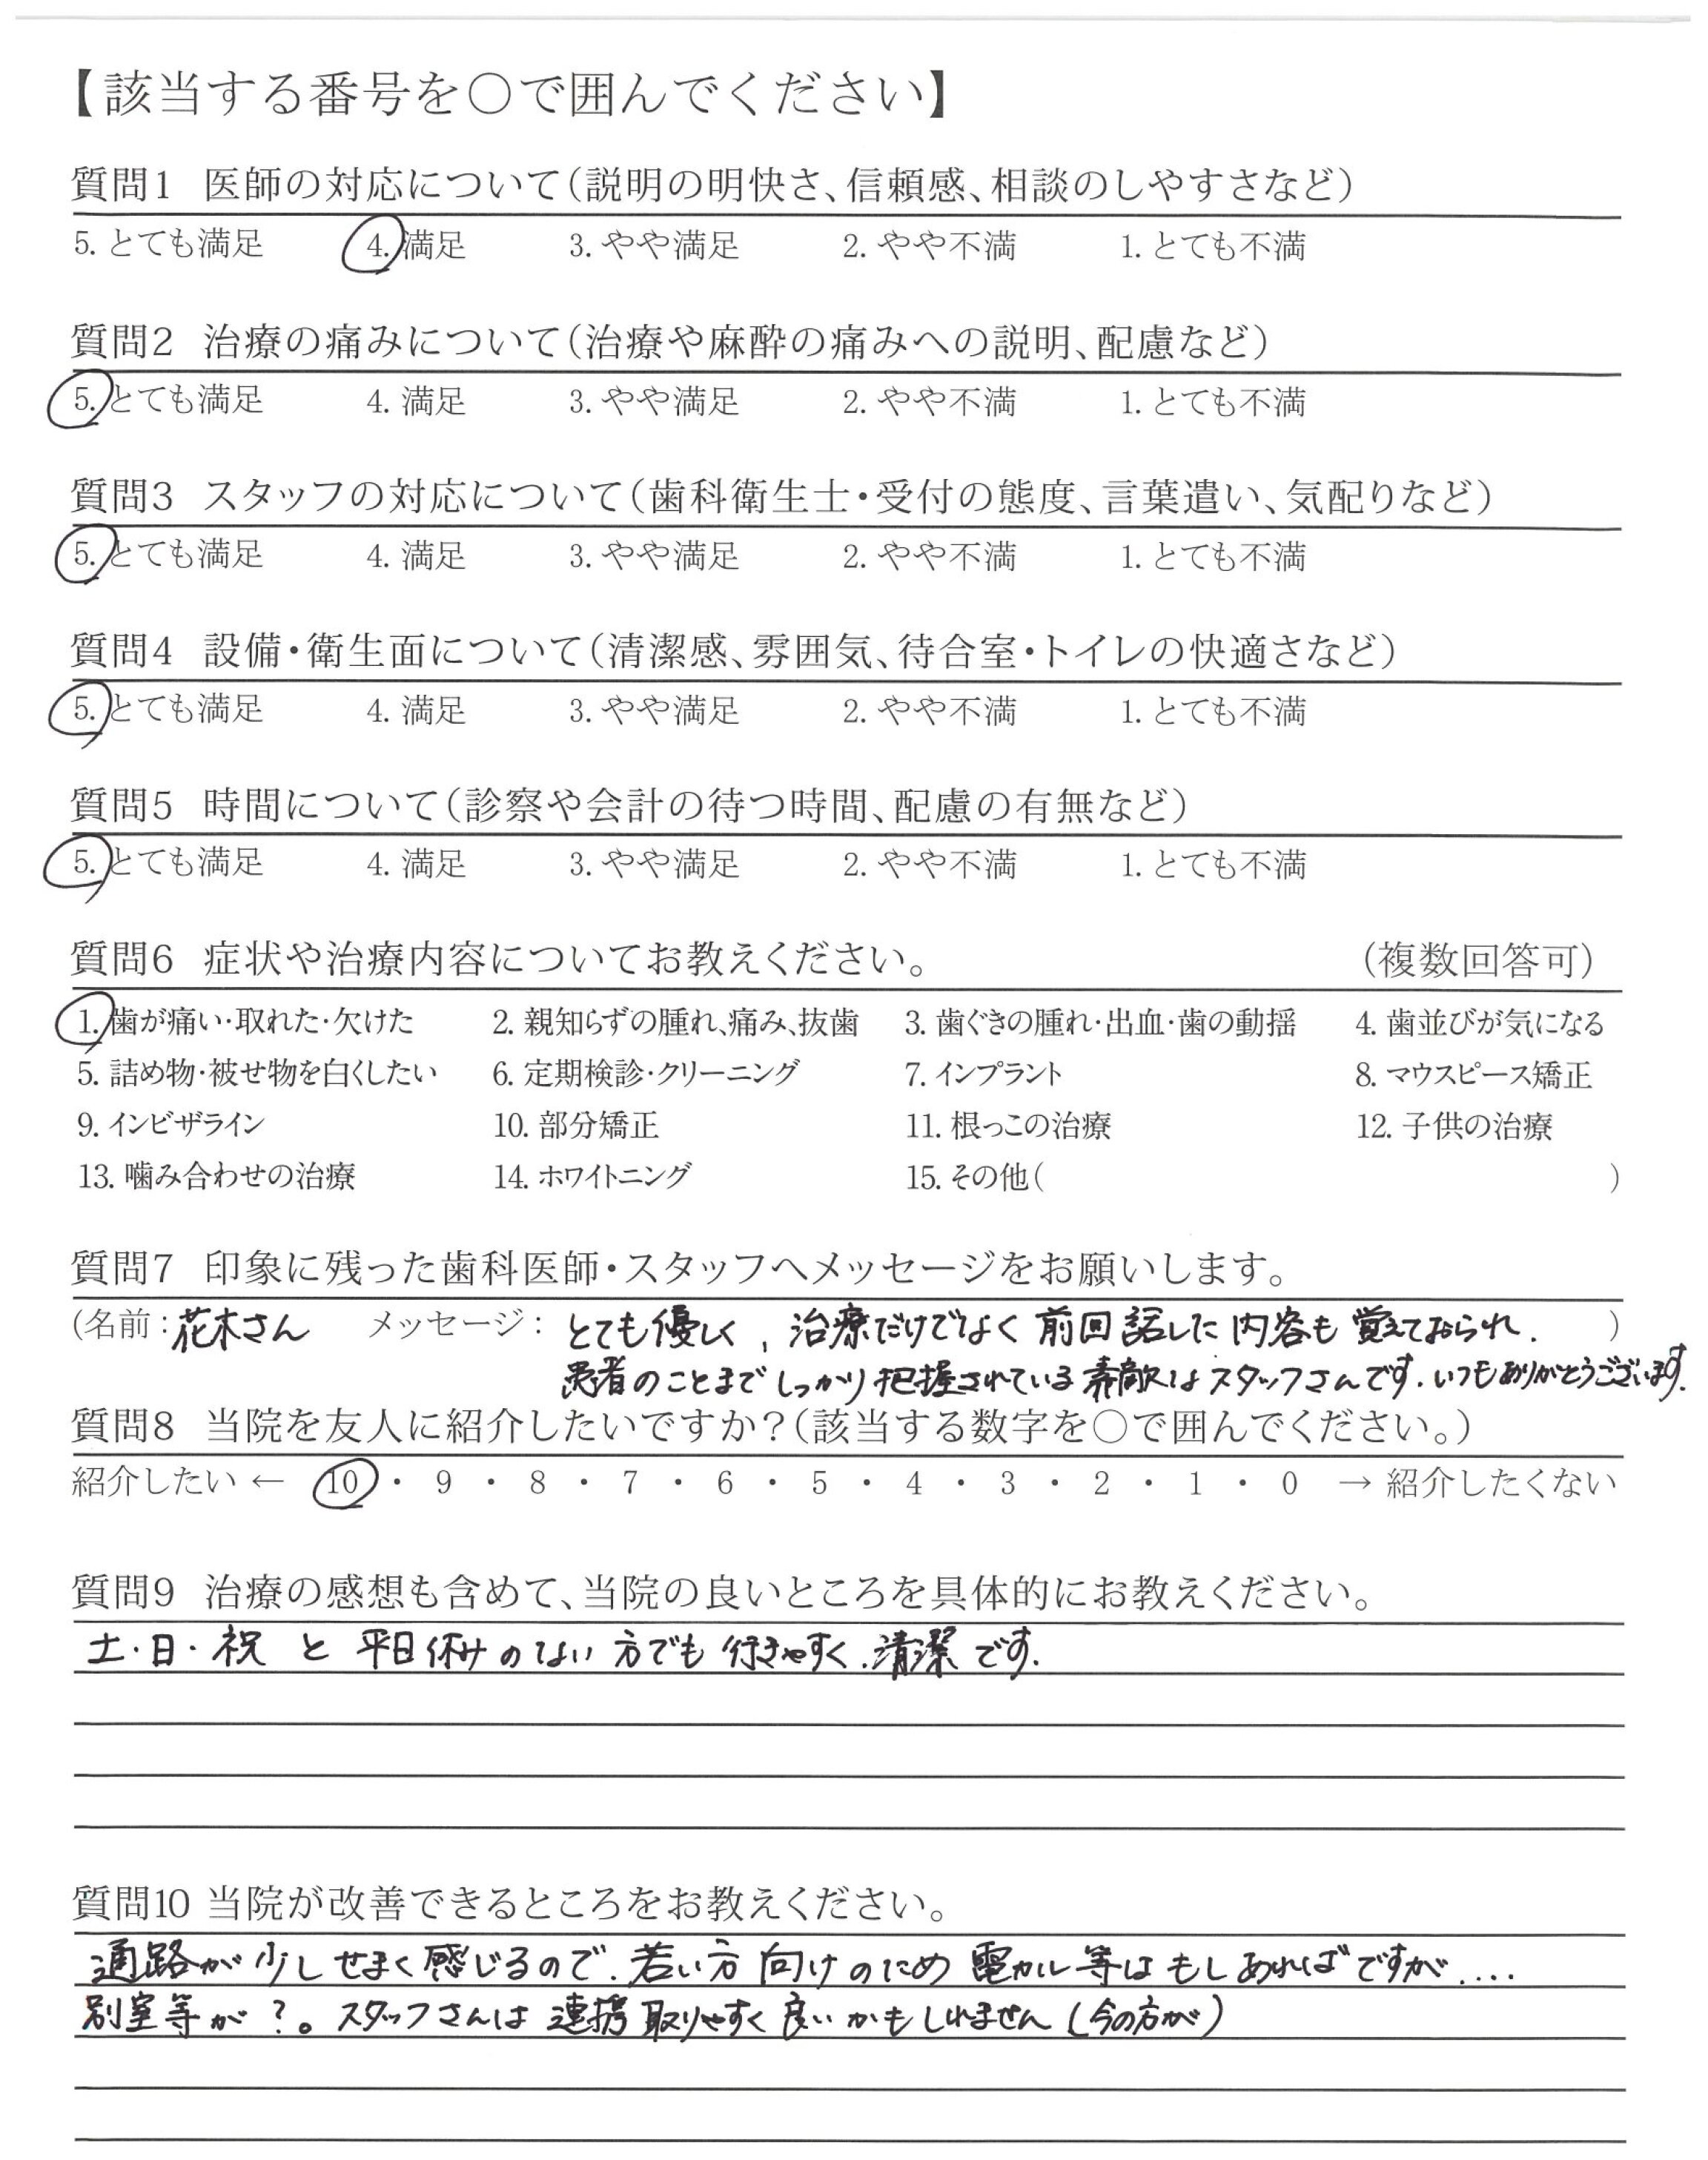 【該当する番号を○で囲んでください】
質問1 医師の対応について(説明の明快さ、信頼感、相談のしやすさなど)
5. とても満足 4. 満足 3. やや満足 2. やや不満 1. とても不満
質問2 治療の痛みについて(治療や麻酔の痛みへの説明、配慮など)
5. とても満足 4. 満足 3. やや満足 2. やや不満 1. とても不満
質問3 スタッフの対応について(歯科衛生士・受付の態度、言葉遣い、気配りなど)
5. とても満足 4. 満足 3. やや満足 2. やや不満 1. とても不満
質問4 設備・衛生面について(清潔感、雰囲気、待合室・トイレの快適さなど)
5. とても満足 4. 満足 3. やや満足 2. やや不満 1. とても不満
質問5 時間について(診察や会計の待つ時間、配慮の有無など)
5. とても満足 4. 満足 3. やや満足 2. やや不満 1. とても不満
質問6 症状や治療内容についてお教えください。 (複数回答可)
1. 歯が痛い・取れた・欠けた 2. 親知らずの腫れ、痛み、抜歯 3. 歯ぐきの腫れ・出血・歯の動揺 4. 歯並びが気になる
5. 詰め物・被せ物を白くしたい 6. 定期検診・クリーニング 7. インプラント 8. マウスピース矯正
9. インビザライン 10. 部分矯正 11. 根っこの治療 12. 子供の治療
13. 噛み合わせの治療 14. ホワイトニング 15. その他( )
質問7 印象に残った歯科医師・スタッフへメッセージをお願いします。
(名前：花木さん メッセージ：とても優しく、治療だけでなく前回話した内容も覚えておられ、 )
患者のことまでしっかり把握されている素敵なスタッフさんです。いつもありがとうございます。
質問8 当院を友人に紹介したいですか？(該当する数字を○で囲んでください。)
紹介したい ← 10 ・ 9 ・ 8 ・ 7 ・ 6 ・ 5 ・ 4 ・ 3 ・ 2 ・ 1 ・ 0 → 紹介したくない
質問9 治療の感想も含めて、当院の良いところを具体的にお教えください。
土・日・祝 と 平日休みのない方でも行きやすく、清潔です。
質問10 当院が改善できるところをお教えください。
通路が少しせまく感じるので、若い方向けのため 電カル等はもしあればですが....
別室等が？。スタッフさんは連携取りやすく良いかもしれません(今の方が)